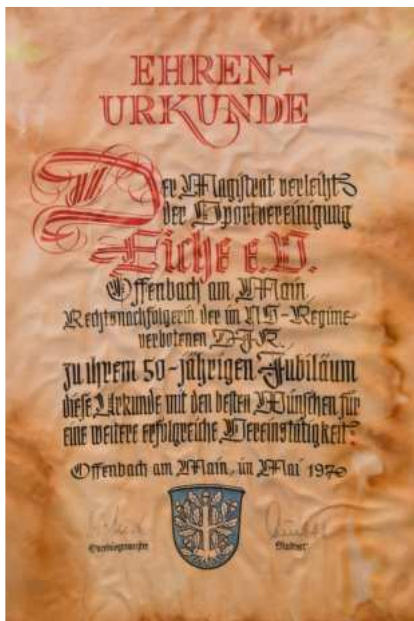 EHREN-
URKUNDE
Der Magistrat verleiht
der Sportvereinigung
Eiche e.V.
Offenbach am Main,
Rechtsnachfolgerin der im NS-Regime
verbotenen DJK,
zu ihrem 50-jährigen Jubiläum
diese Urkunde mit den besten Wünschen für
eine weitere erfolgreiche Vereinstätigkeit.
Offenbach am Main, im Mai 1970
Oberbürgermeister
Stadtrat